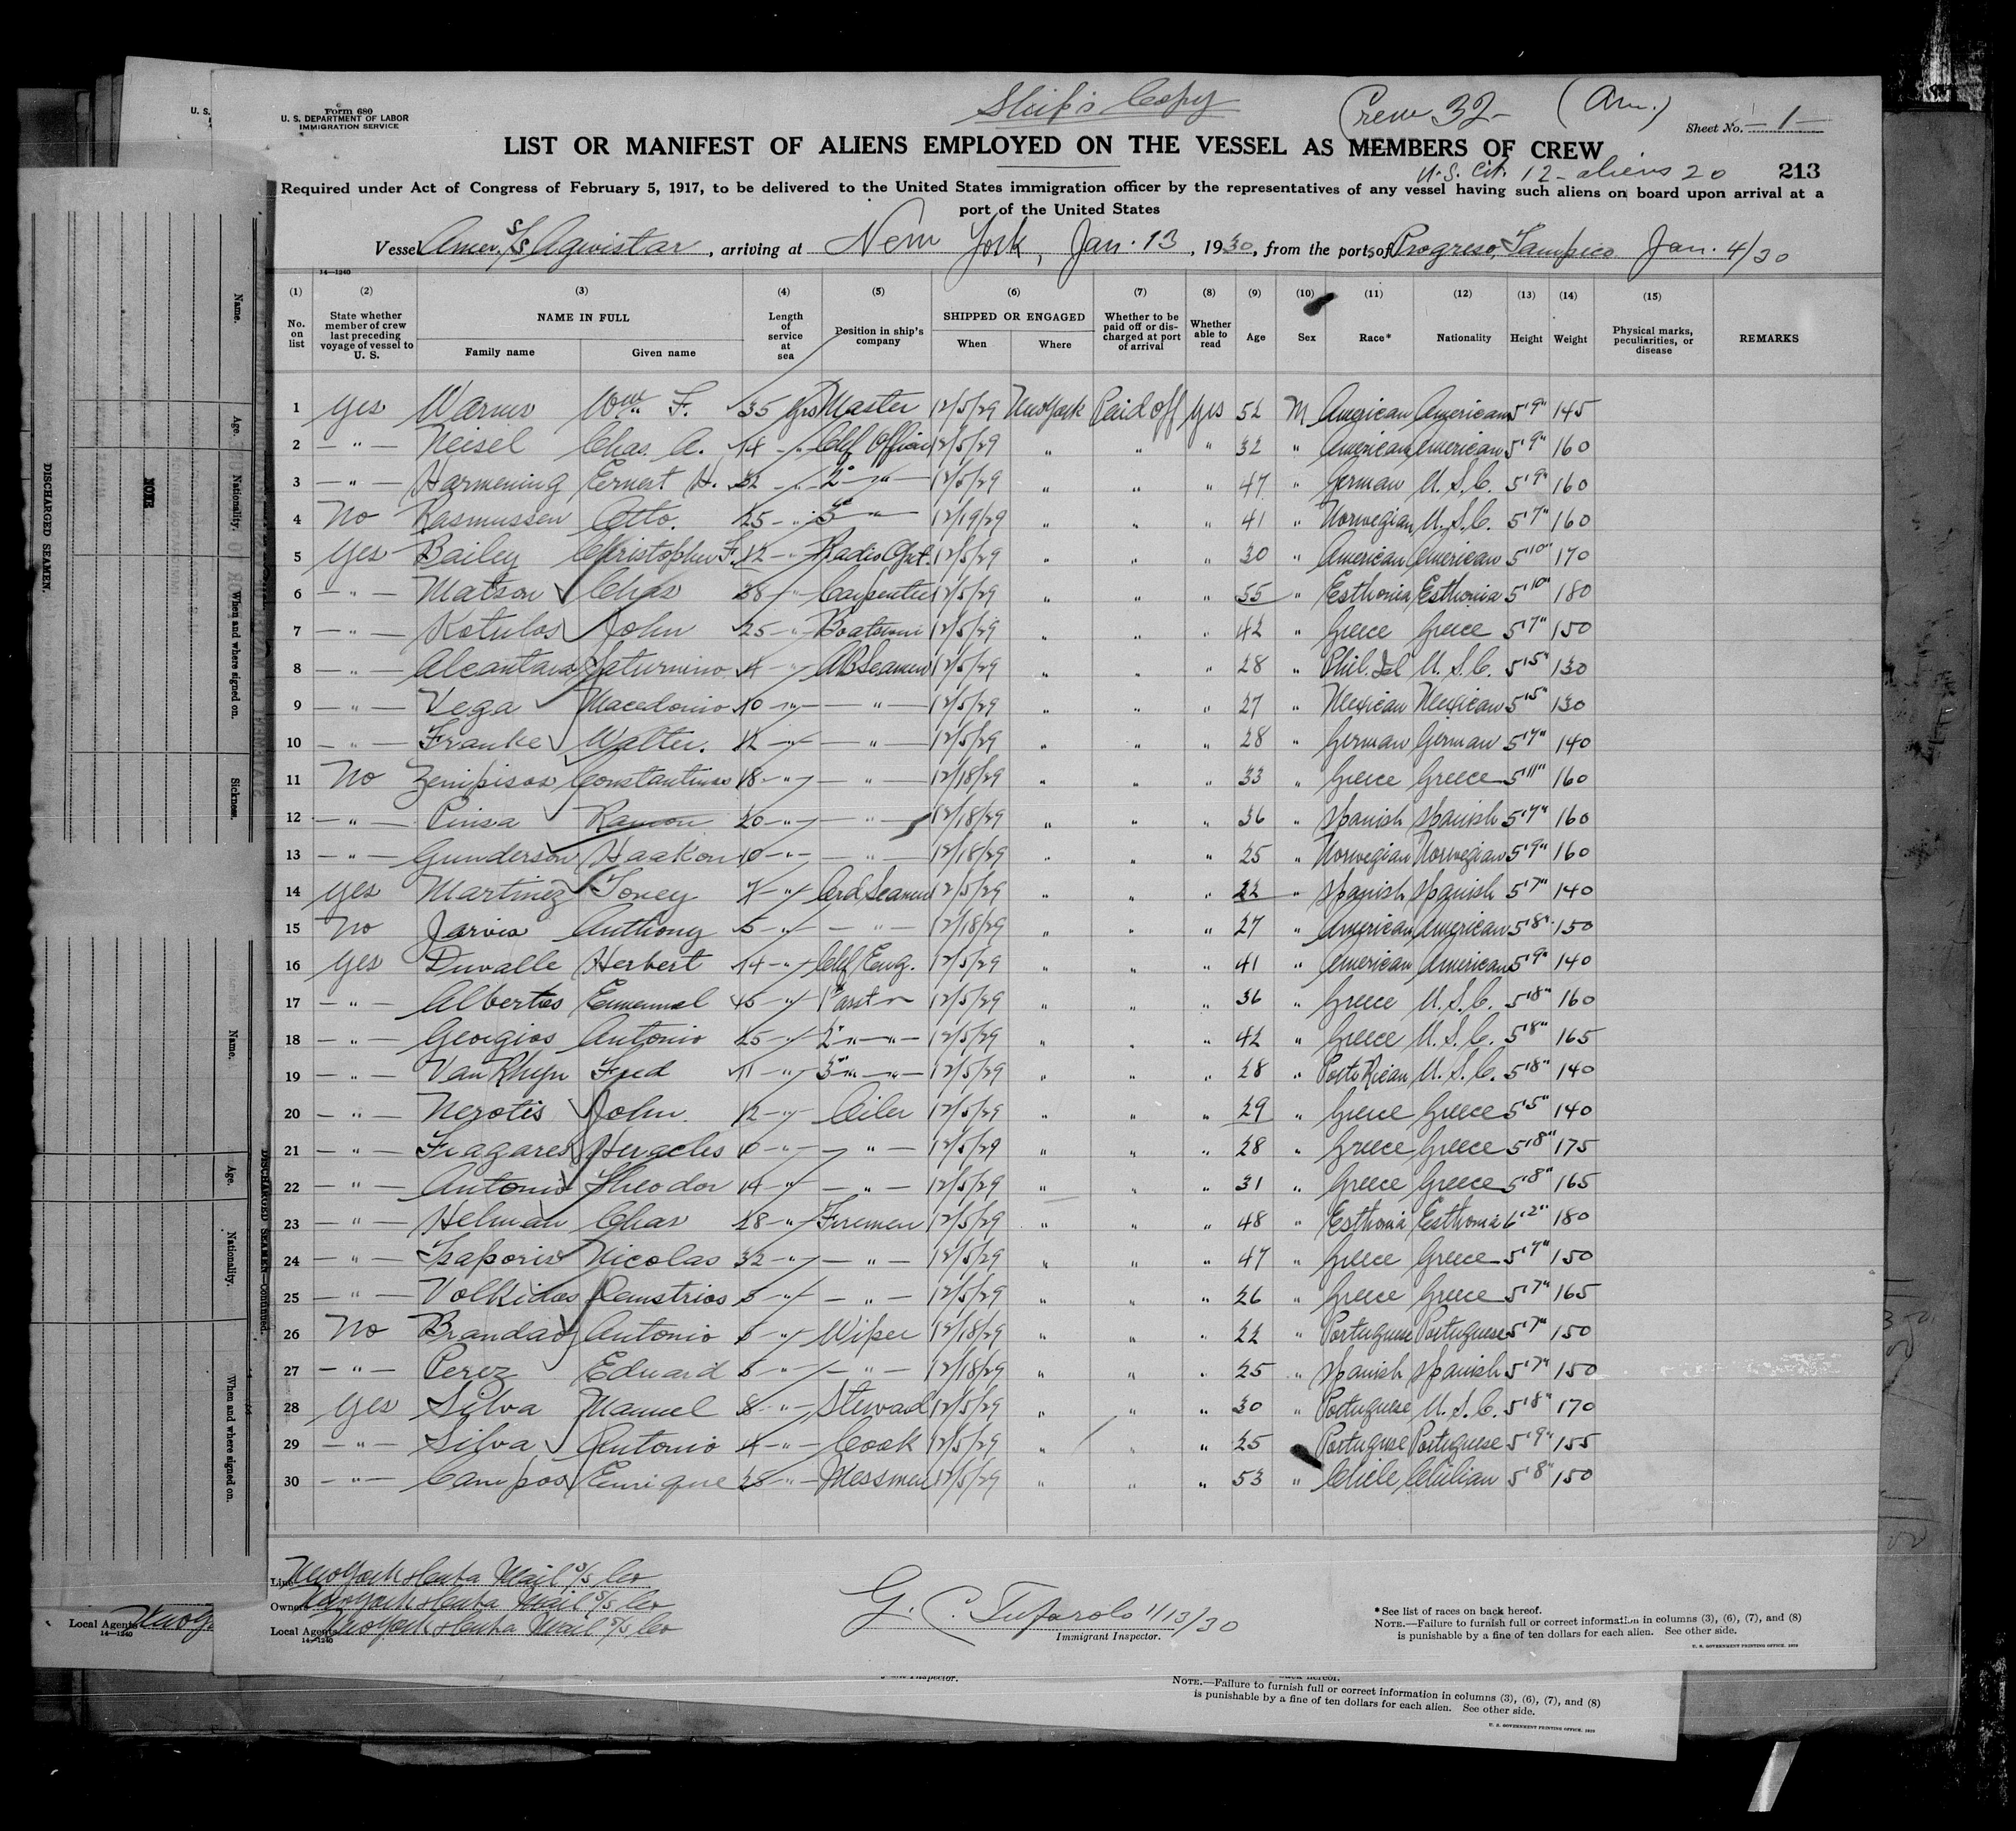 Form 680
U. S. DEPARTMENT OF LABOR
IMMIGRATION SERVICE
Ship's Copy
Crew 32- (Am.)
Sheet No. -1-
LIST OR MANIFEST OF ALIENS EMPLOYED ON THE VESSEL AS MEMBERS OF CREW
U.S. Cit. 12- aliens 20
213
Required under Act of Congress of February 5, 1917, to be delivered to the United States immigration officer by the representatives of any vessel having such aliens on board upon arrival at a
port of the United States
Vessel Amer. S/S Agwistar, arriving at New York, Jan. 13, 1930, from the ports of Progreso, Tampico Jan. 4/30
14—1240
(1) (2) (3) (4) (5) (6) (7) (8) (9) (10) (11) (12) (13) (14) (15)
No. on list
State whether member of crew last preceding voyage of vessel to U. S.
NAME IN FULL
Family name
Given name
Length of service at sea
Position in ship's company
SHIPPED OR ENGAGED
When
Where
Whether to be paid off or discharged at port of arrival
Whether able to read
Age
Sex
Race*
Nationality
Height
Weight
Physical marks, peculiarities, or disease
REMARKS
1 Yes Warner Wm. F. 35 yrs Master 12/5/29 New York Paid off Yes 52 M American American 5'9" 145
2 — " — Neisel Chas. A. 14 - " - Chf Officer 12/5/29 " " " 32 " American American 5'9" 160
3 — " — Harmening Ernest H. 32 - " - 2° — " — 12/5/29 " " " 47 " German U.S.C. 5'9" 160
4 No Rasmussen Otto. 25 - " - 3° — " — 12/19/29 " " " 41 " Norwegian U.S.C. 5'7" 160
5 Yes Bailey Christopher F. 12 - " - Radio Opt. 12/5/29 " " " 30 " American American 5'10" 170
6 — " — Matson Chas 38 - " - Carpenter 12/5/29 " " " 55 " Esthonia Esthonia 5'10" 180
7 — " — Kotulos John 25 - " - Boatswain 12/5/29 " " " 42 " Greece Greece 5'7" 150
8 — " — Alcantara Saturnino 4 - " - AB Seamen 12/5/29 " " " 28 " Phil. Isl U.S.C. 5'5" 130
9 — " — Vega Macedonio 10 - " - — " — 12/5/29 " " " 27 " Mexican Mexican 5'5" 130
10 — " — Franke Walter. 12 - " - — " — 12/5/29 " " " 28 " German German 5'7" 140
11 No Zenipisos Constantinos 18 - " - — " — 12/18/29 " " " 33 " Greece Greece 5'11" 160
12 — " — Ramon 20 - " - — " — 12/18/29 " " " 36 " Spanish Spanish 5'7" 160
13 — " — Gunderson Haakon 10 - " - — " — 12/18/29 " " " 25 " Norwegian Norwegian 5'9" 160
14 Yes Martinez Toney 7 - " - Ord Seamen 12/5/29 " " " 22 " Spanish Spanish 5'7" 140
15 No Jarvis Anthony 5 - " - — " — 12/18/29 " " " 27 " American American 5'8" 150
16 Yes Duvalle Herbert 14 - " - Chf Eng. 12/5/29 " " " 41 " American American 5'9" 140
17 — " — Albertos Emmanuel 15 - " - 1° asst — " 12/5/29 " " " 36 " Greece U.S.C. 5'8" 160
18 — " — Georgios Antonio 25 - " - 2° — " — " — 12/5/29 " " " 42 " Greece U.S.C. 5'8" 165
19 — " — Van Rhyn Fred 11 - " - 3° — " — " — 12/5/29 " " " 28 " Porto Rican U.S.C. 5'8" 140
20 — " — Nerotis John 12 - " - Oiler 12/5/29 " " " 29 " Greece Greece 5'5" 140
21 — " — Fragares Heracles 6 - " - — " — 12/5/29 " " " 28 " Greece Greece 5'8" 175
22 — " — Antonio Theodor 14 - " - — " — 12/5/29 " " " 31 " Greece Greece 5'8" 165
23 — " — Helman Chas 28 - " - Firemen 12/5/29 " " " 48 " Esthonia Esthonia 6'2" 180
24 — " — Tsaporis Nicolas 32 - " - — " — 12/5/29 " " " 47 " Greece Greece 5'7" 150
25 — " — Volkidos Demstrios 5 - " - — " — 12/5/29 " " " 26 " Greece Greece 5'7" 165
26 No Brandao Antonio 5 - " - Wiper 12/18/29 " " " 22 " Portuguese Portuguese 5'7" 150
27 — " — Perez Eduard 5 - " - — " — 12/18/29 " " " 25 " Spanish Spanish 5'7" 150
28 Yes Silva Manuel 8 - " - Steward 12/5/29 " " " 30 " Portuguese U.S.C. 5'8" 170
29 — " — Silva Antonio 4 - " - Cook 12/5/29 " " " 25 " Portuguese Portuguese 5'9" 155
30 — " — Campos Enrique 28 - " - Messmen 12/5/29 " " " 53 " Chile Chilian 5'8" 150
Line New York & Cuba Mail S/S Co
Owners New York & Cuba Mail S/S Co
Local Agents New York & Cuba Mail S/S Co
14—1240
G. C. Tufarolo 1/13/30
Immigrant Inspector.
*See list of races on back hereof.
NOTE.—Failure to furnish full or correct information in columns (3), (6), (7), and (8)
is punishable by a fine of ten dollars for each alien. See other side.
U. S. GOVERNMENT PRINTING OFFICE
U. S.
DISCHARGED SEAMEN.
NOTE
Name.
Age.
Nationality.
When and where signed on.
Sickness.
DISCHARGED SEAMEN—Continued.
Name.
Age.
Nationality.
When and where signed on.
Local Agents
14—1240
back hereof.
NOTE.—Failure to furnish full or correct information in columns (3), (6), (7), and (8)
is punishable by a fine of ten dollars for each alien. See other side.
U. S. GOVERNMENT PRINTING OFFICE
Inspector.